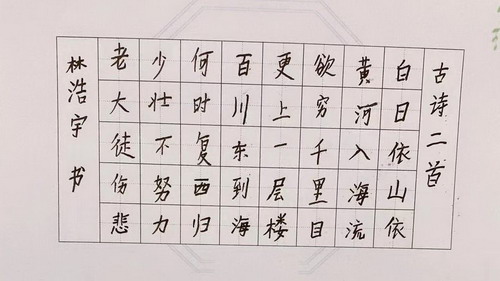 古诗二首
白日依山依
黄河入海流
欲穷千里目
更上一层楼
百川东到海
何时复西归
少壮不努力
老大徒伤悲
林浩宇 书